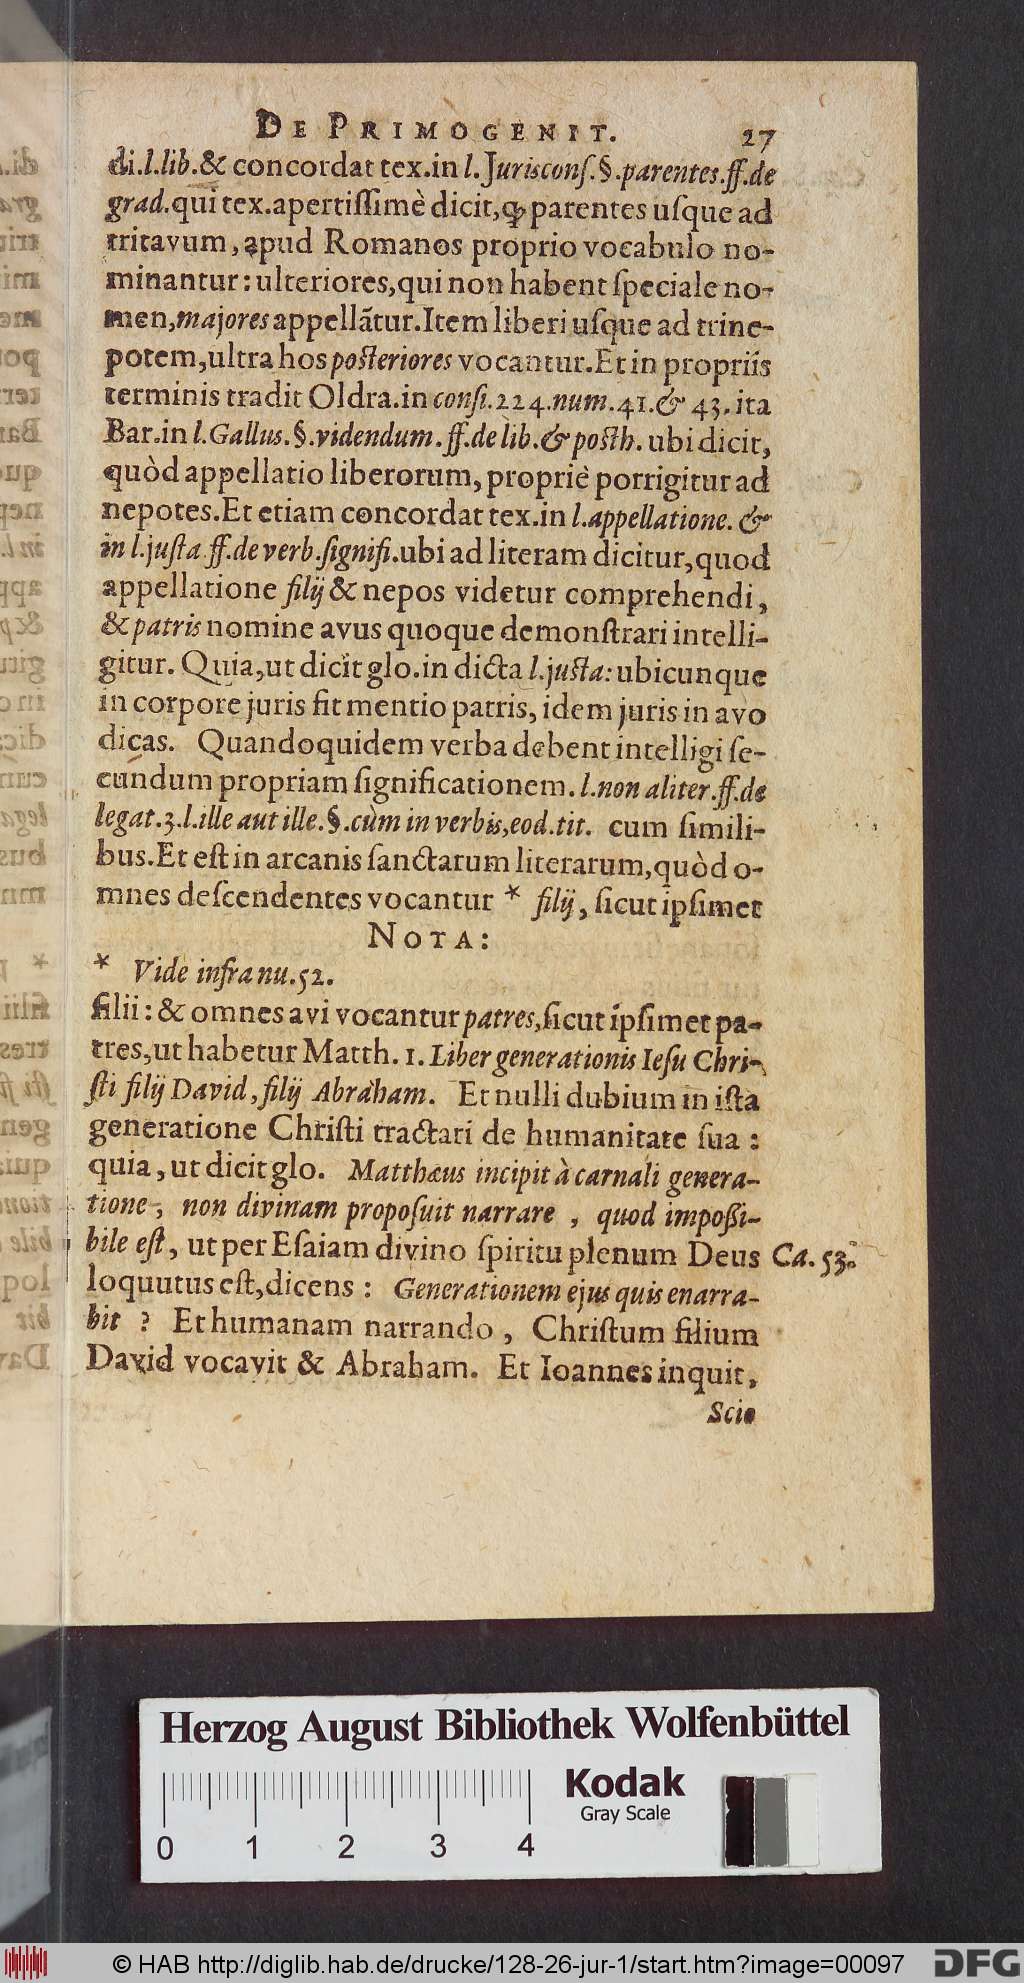 DE PRIMOGENIT. 27
di.l.lib.& concordat tex.in l.Jurisconſ.§.parentes.ff.de
grad.qui tex.apertiſſimè dicit,ꝙ parentes uſque ad
tritavum, apud Romanos proprio vocabulo no-
minantur: ulteriores, qui non habent ſpeciale no-
men, majores appellãtur. Item liberi uſque ad trine-
potem, ultra hos poſteriores vocantur. Et in propriis
terminis tradit Oldra.in conſi.224.num.41.& 43. ita
Bar.in l.Gallus.§.videndum.ff.de lib.& poſth. ubi dicit,
quòd appellatio liberorum, propriè porrigitur ad
nepotes. Et etiam concordat tex.in l.appellatione. &
in l.juſta ff.de verb.ſignifi.ubi ad literam dicitur, quod
appellatione filij & nepos videtur comprehendi,
& patris nomine avus quoque demonſtrari intelli-
gitur. Quia, ut dicit glo.in dicta l.juſta: ubicunque
in corpore juris fit mentio patris, idem juris in avo
dicas. Quandoquidem verba debent intelligi ſe-
cundum propriam ſignificationem. l.non aliter.ff.de
legat.3.l.ille aut ille.§.cùm in verbis,eod.tit. cum ſimili-
bus. Et eſt in arcanis ſanctarum literarum, quòd o-
mnes deſcendentes vocantur * filij, ſicut ipſimet
NOTA:
* Vide infra nu.52.
filii: & omnes avi vocantur patres, ſicut ipſimet pa-
tres, ut habetur Matth. 1. Liber generationis Ieſu Chri-
ſti filij David, filij Abraham. Et nulli dubium in iſta
generatione Chriſti tractari de humanitate ſua:
quia, ut dicit glo. Matthæus incipit à carnali genera-
tione, non divinam propoſuit narrare, quod impoßi-
bile eſt, ut per Eſaiam divino ſpiritu plenum Deus Ca. 53.
loquutus eſt, dicens: Generationem ejus quis enarra-
bit? Et humanam narrando, Chriſtum filium
David vocavit & Abraham. Et Ioannes inquit,
Scio
Herzog August Bibliothek Wolfenbüttel
Kodak
Gray Scale
0 1 2 3 4
© HAB http://diglib.hab.de/drucke/128-26-jur-1/start.htm?image=00097
DFG